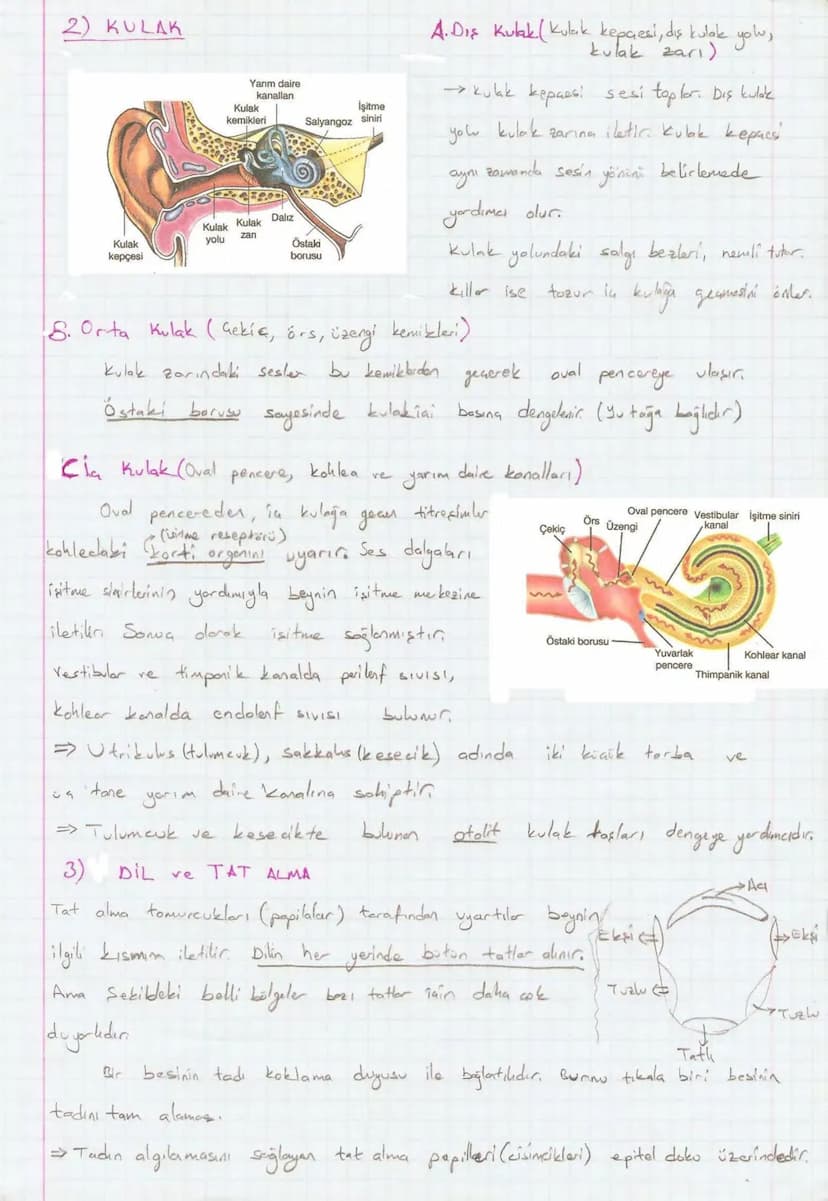 2) KULAK
Yarım daire
kanalları
Kulak
kemikleri
Salyangoz
İşitme
siniri
Kulak
kepçesi
Kulak
yolu
Kulak
zarı
Dalız
Östaki
borusu
A. Dış Kulak (Kulak kepçesi, dış kulak yolu,
kulak zarı)
→ Kulak kepçesi sesi toplar. Dış kulak
yolu kulak zarına iletir. Kulak kepçesi
aynı zamanda sesin yönünü belirlemede
yardımcı olur.
Kulak yolundaki salgı bezleri, nemli tutar.
Kıllar ise tozun iç kulağa geçmesini önler.
B. Orta Kulak (Çekiç, örs, üzengi kemikleri)
Kulak zarındaki sesler bu kemiklerden geçerek oval pencereye ulaşır.
Östaki borusu sayesinde kulakiçi basınç dengelenir. (Yutağa bağlıdır)
C İç Kulak (Oval pencere, kohlea ve yarım daire kanalları)
Oval pencereden, iç kulağa geçen titreşimler
(işitme reseptörü)
kohledaki korti organını uyarır. Ses dalgaları
işitme sinirlerinin yardımıyla beynin işitme merkezine
iletilir. Sonuç olarak işitme sağlanmıştır.
Vestibular ve timponik kanalda perilenf sıvısı,
Kohlear kanalda endolenf sıvısı bulunur.
Çekiç
Örs
Üzengi
Oval pencere
Vestibular
kanal
İşitme siniri
Östaki borusu
Yuvarlak
pencere
Thimpanik kanal
Kohlear kanal
⇒ Utrikulus (tulumcuk), sakkulus (kesecik) adında iki küçük torba ve
üç tane yarım daire kanalına sahiptir.
⇒ Tulumcuk ve kesecikte bulunan otolit kulak taşları dengeye yardımcıdır.
3) DİL ve TAT ALMA
Tat alma tomurcukları (papilalar) tarafından uyartılar beynin
ilgili kısmına iletilir. Dilin her yerinde bütün tatlar alınır.
Ama Şekildeki belli bölgeler bazı tatlar için daha çok
duyarlıdır.
Acı
Ekşi
Ekşi
Tuzlu
Tuzlu
Tatlı
Bir besinin tadı koklama duyusu ile bağlantılıdır. Burnu tıkalı biri besinin
tadını tam alamaz.
⇒ Tadın algılamasını sağlayan tat alma papilleri (cisimcikleri) epitel doku üzerindedir.